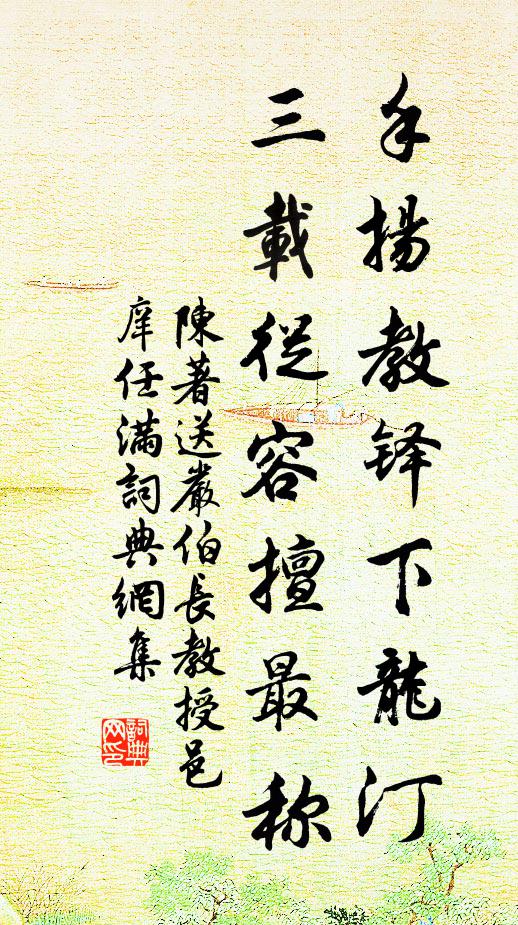 手揚教铎下龍汀
三載從容擅最称
陳著送嚴伯長教授邑
庠任满詞典網集
詞典网印